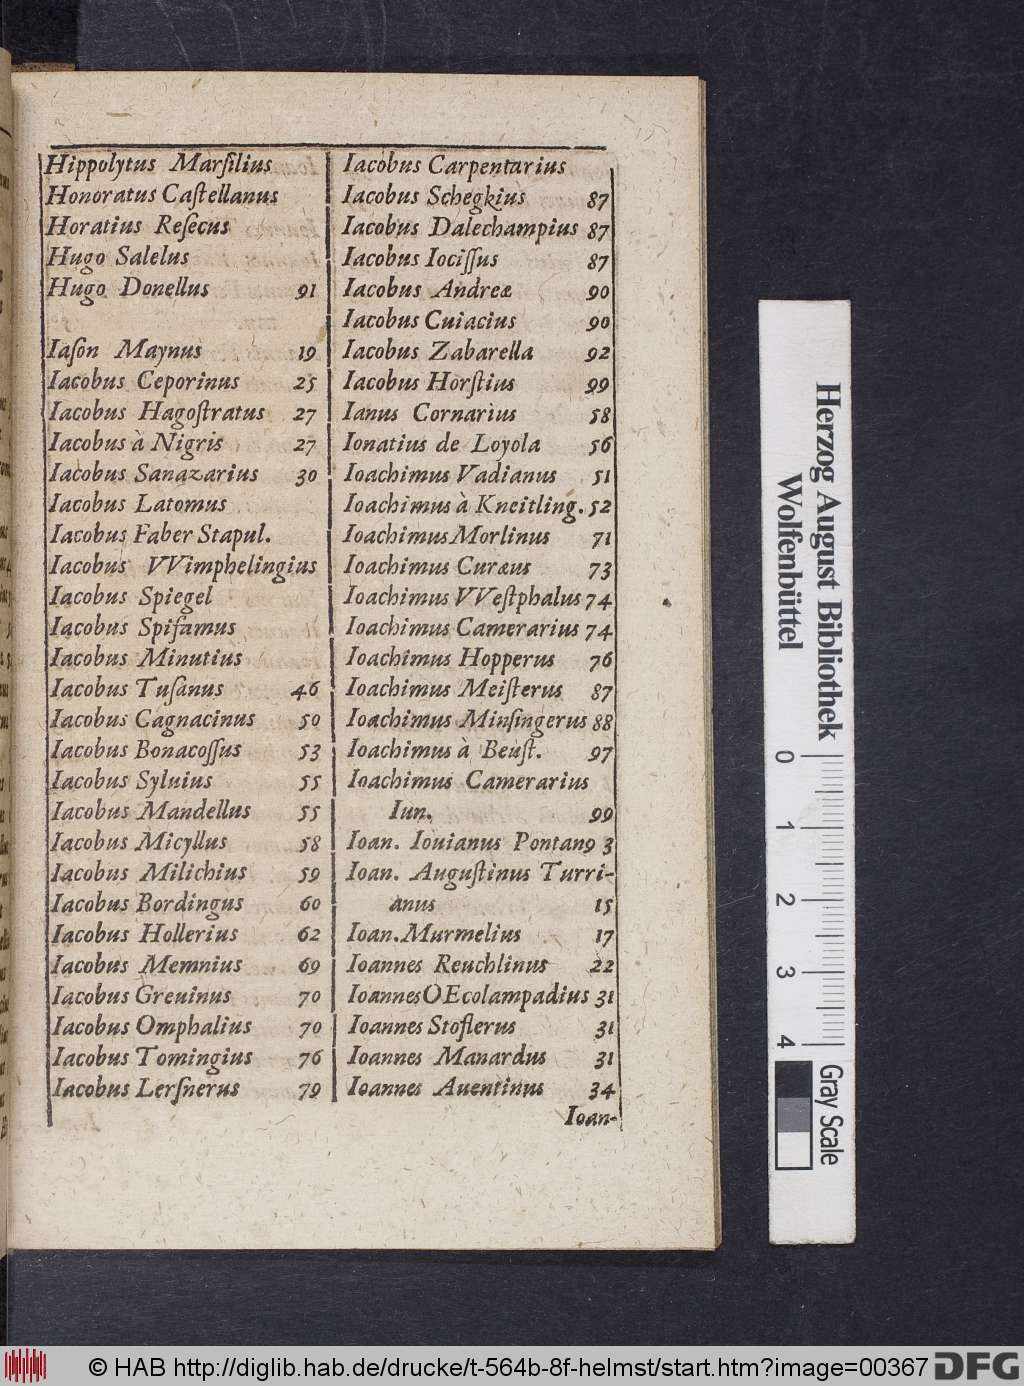 Hippolytus Marſilius
Honoratus Caſtellanus
Horatius Reſecus
Hugo Salelus
Hugo Donellus 91
Iaſon Maynus 19
Iacobus Ceporinus 25
Iacobus Hagoſtratus 27
Iacobus à Nigris 27
Iacobus Sanazarius 30
Iacobus Latomus
Iacobus Faber Stapul.
Iacobus VVimphelingius
Iacobus Spiegel
Iacobus Spifamus
Iacobus Minutius
Iacobus Tuſanus 46
Iacobus Cagnacinus 50
Iacobus Bonacoſſus 53
Iacobus Syluius 55
Iacobus Mandellus 55
Iacobus Micyllus 58
Iacobus Milichius 59
Iacobus Bordingus 60
Iacobus Hollerius 62
Iacobus Memnius 69
Iacobus Greuinus 70
Iacobus Omphalius 70
Iacobus Tomingius 76
Iacobus Lerſnerus 79
Iacobus Carpentarius
Iacobus Schegkius 87
Iacobus Dalechampius 87
Iacobus Iociſſus 87
Iacobus Andreæ 90
Iacobus Cuiacius 90
Iacobus Zabarella 92
Iacobus Horſtius 99
Ianus Cornarius 58
Ionatius de Loyola 56
Ioachimus Vadianus 51
Ioachimus à Kneitling. 52
Ioachimus Morlinus 71
Ioachimus Curæus 73
Ioachimus VVeſtphalus 74
Ioachimus Camerarius 74
Ioachimus Hopperus 76
Ioachimus Meiſterus 87
Ioachimus Minſingerus 88
Ioachimus à Beuſt. 97
Ioachimus Camerarius
Iun. 99
Ioan. Iouianus Pontanꝰ 3
Ioan. Auguſtinus Turri-
anus 15
Ioan. Murmelius 17
Ioannes Reuchlinus 22
Ioannes OEcolampadius 31
Ioannes Stoflerus 31
Ioannes Manardus 31
Ioannes Auentinus 34
Ioan-
Herzog August Bibliothek
Wolfenbüttel
0 1 2 3 4
Gray Scale
© HAB http://diglib.hab.de/drucke/t-564b-8f-helmst/start.htm?image=00367
DFG